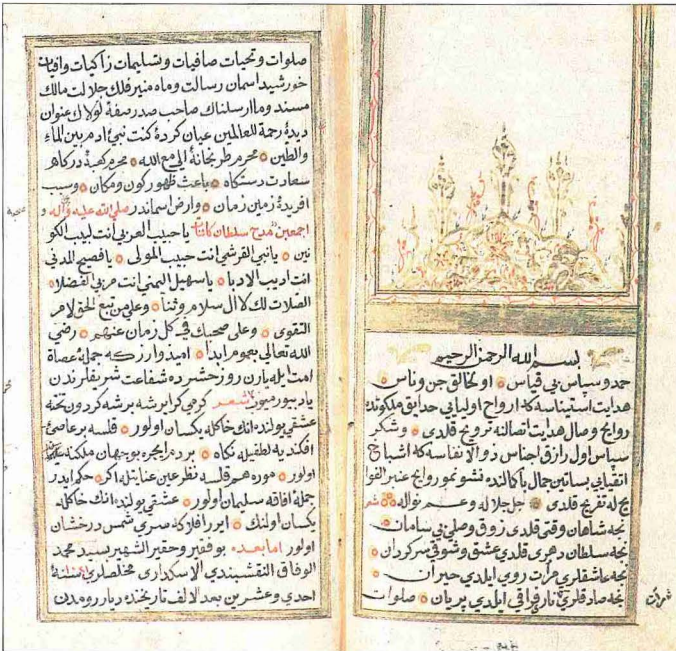 بسم الله الرحمن الرحيم
حمد و سپاس بى قياس اول خالق جن وناس
هدايت استيناسه كه ارواح اوليايى حدايق ملكوتده
روايح وصال هدايت اتصالنه ترويح قلدى وشكر
سپاس اول رازق اجناس ذوالانفاسه كه اشباح
اتقيايى بساتين جمال با كمالنده نشو ونمو روايح عنبر الفوا
يح له تفريح قلدى جل جلاله وعم نواله شعر
نجه شاهان وقتى قلدى ذوق وصلى بى سامان
نجه سلطان دهرى قلدى عشق و شوقى سركردان
نجه عاشقلرى مرآت روى ايلدى حيران
نجه صادقلرى نار فراقى ايلدى بريان صلوات
صلوات و تحيات صافيات وتسليمات زاكيات وافيات
خورشيد اسمان رسالت وماه منير فلك جلالت مالك
مسند وما ارسلناك صاحب صدر صفۀ لولاك عنوان
ديدۀ رحمة للعالمين عيان كردۀ كنت نبى ادم بين الماء
والطين محرم طربخانۀ لى مع الله محرم كعبۀ دركاه
سعادت دستكاه باعث ظهور كون ومكان وسبب
افريدۀ زمين زمان وارض اسماندر صلى الله عليه وآله و
اجمعين مدح سلطان كائنات يا حبيب العربى انت لبيب الكو
نين يا نبى القرشى انت حبيب المولى يا فصيح المدنى
انت اديب الادبا يا سهيل اليمنى انت مربى الفضلا
الصلات لك لا ال سلام وثنا وعلى من تبع الحق لامر
التقوى وعلى صحبك فى كل زمان عنهم رضى
الله تعالى بجموم ابدا اميد واردركه جملۀ عصاة
امت ايله يارن روز حشرده شفاعت شريفلرندن
ياد بيور ميور شعر كرمى كر ايرشه برشه كردون تخته
عشقى يولنده انك خاكله يكسان اولور قلسه بر عاصئ
افكنديه لطفيله نكاه بردم ايچره بو جهان ملكنه سلطان
اولور موره هم قلسه نظر عين عنايتله اكر حكم ايدر
جملۀ افاقه سليمان اولور عشقى يولنده انك خاكله
يكسان اولنك ايرر افلاكه سرى شمس درخشان
اولور اما بعده بو فقير وحقير الشهير بسيد محمد
الوفاق النقشبندى الاسكدارى مخلصلرى سنۀ
احدى وعشرين بعد الالف تاريخنده ديار رومدن